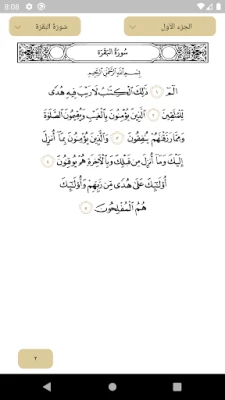 8:08
الجزء الأول
سورة البقرة
سُورَةُ البَقَرَةِ
بِسۡمِ ٱللَّهِ ٱلرَّحۡمَٰنِ ٱلرَّحِيمِ
الٓمٓ ١ ذَٰلِكَ ٱلۡكِتَٰبُ لَا رَيۡبَۛ فِيهِۛ هُدٗى
لِّلۡمُتَّقِينَ ٢ ٱلَّذِينَ يُؤۡمِنُونَ بِٱلۡغَيۡبِ وَيُقِيمُونَ ٱلصَّلَوٰةَ
وَمِمَّا رَزَقۡنَٰهُمۡ يُنفِقُونَ ٣ وَٱلَّذِينَ يُؤۡمِنُونَ بِمَآ أُنزِلَ
إِلَيۡكَ وَمَآ أُنزِلَ مِن قَبۡلِكَ وَبِٱلۡأٓخِرَةِ هُمۡ يُوقِنُونَ ٤
أُوْلَٰٓئِكَ عَلَىٰ هُدٗى مِّن رَّبِّهِمۡۖ وَأُوْلَٰٓئِكَ
هُمُ ٱلۡمُفۡلِحُونَ ٥
٢